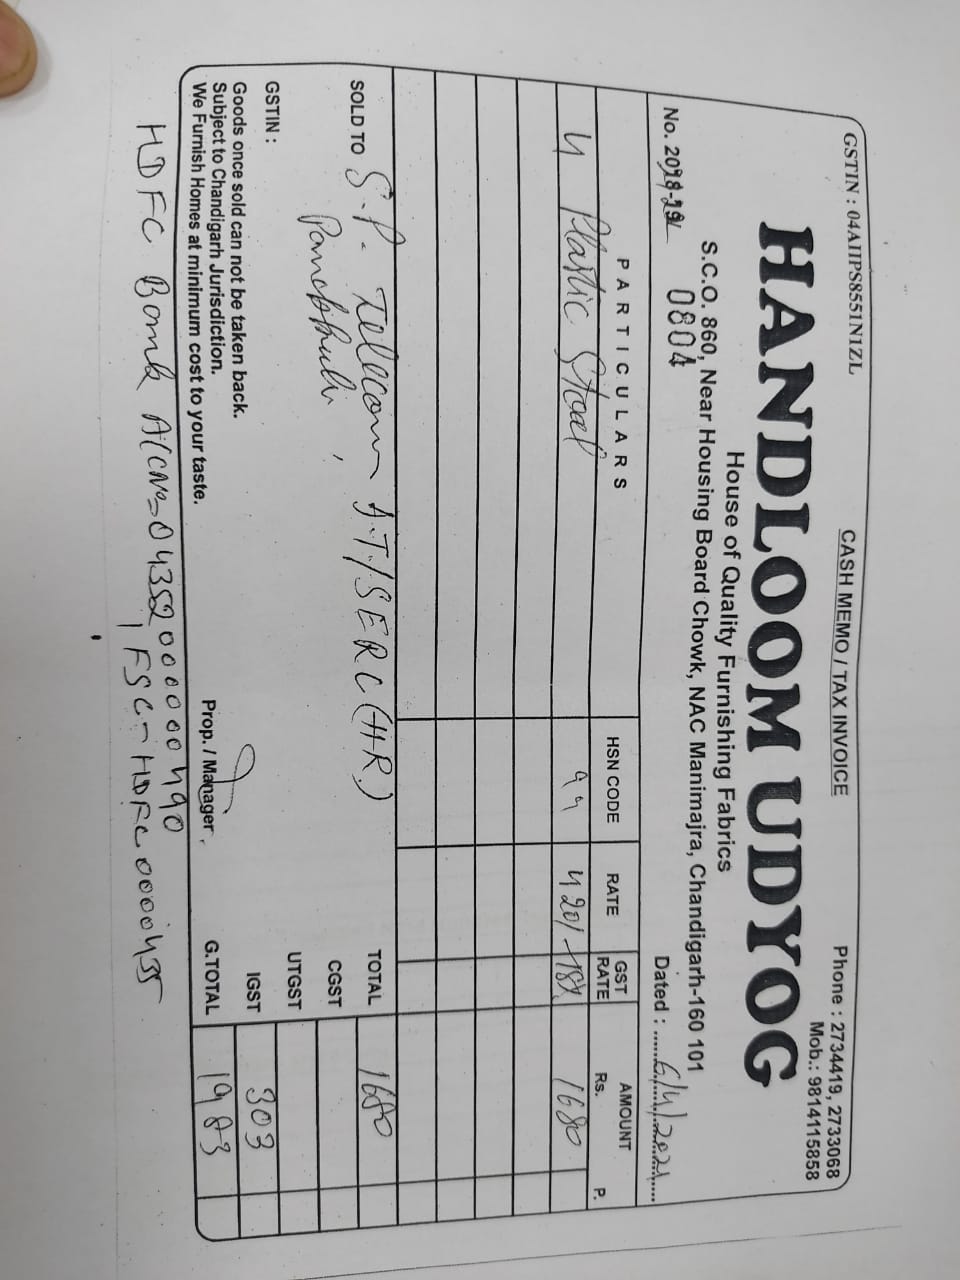 GSTIN : 04AIIPS8551N1ZL
CASH MEMO / TAX INVOICE
Phone : 2734419, 2733068
Mob.: 9814115858
HANDLOOM UDYOG
House of Quality Furnishing Fabrics
S.C.O. 860, Near Housing Board Chowk, NAC Manimajra, Chandigarh-160 101
No. 0804
Dated : 6/4/2021
PARTICULARS HSN CODE RATE GST RATE AMOUNT Rs. P.
4 Plastic Stool 99 420/- 18% 1680
SOLD TO S.P. Telecom A.T/SERC (HR)
TOTAL 1680
CGST
UTGST
GSTIN :
IGST 303
Goods once sold can not be taken back.
Subject to Chandigarh Jurisdiction.
We Furnish Homes at minimum cost to your taste.
Prop. / Manager
G.TOTAL 1983
HDFC Bank A/C No= 04352000000490
IFSC - HDFC0000435